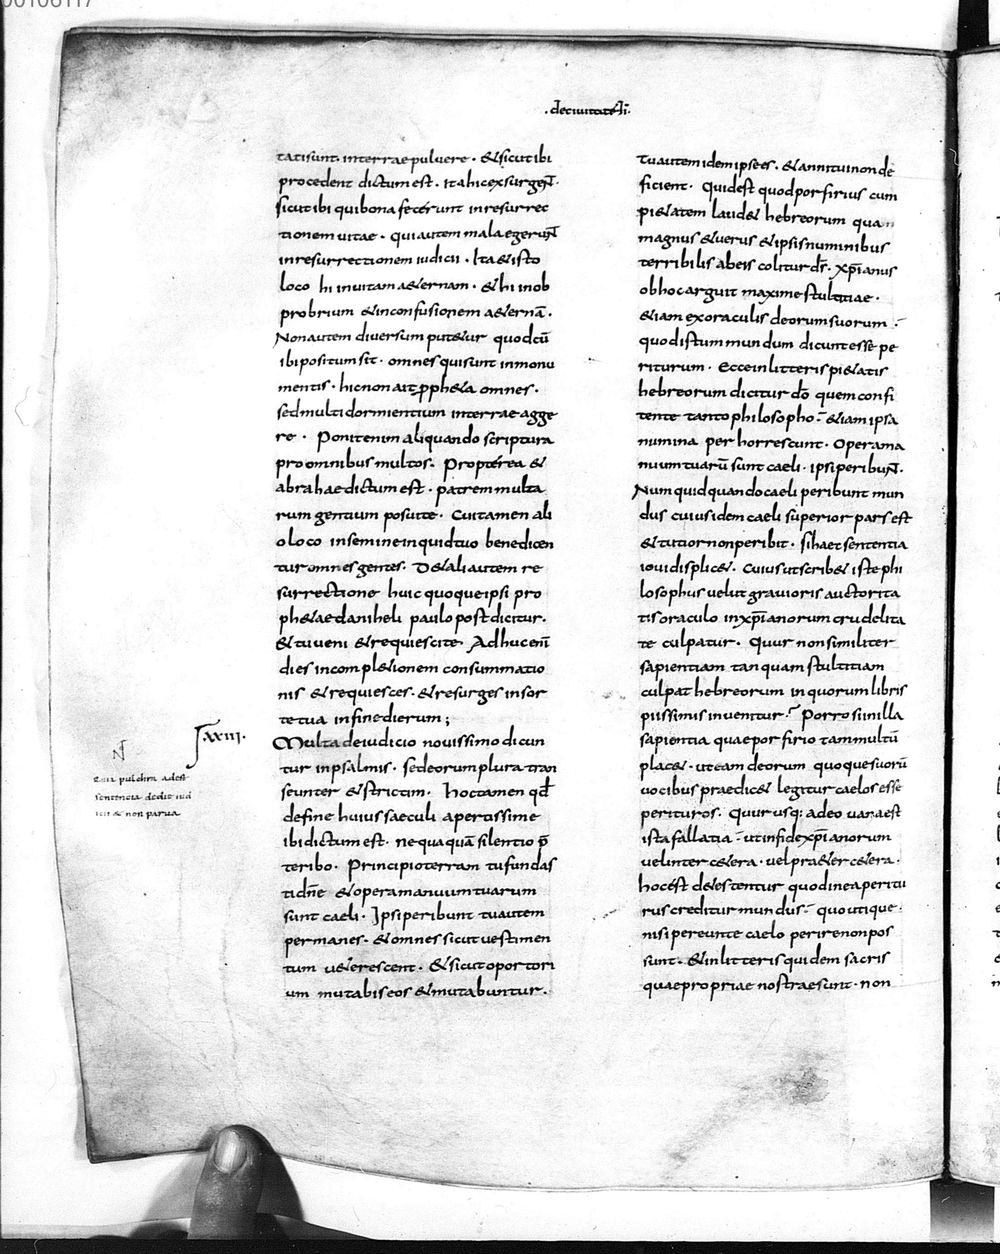 00106117
.deciuitatedi.
tatisunt. interraepuluere. &sicutibi
procedent dictumest. itahicexsurgent.
sicutibi quibona fecerunt inresurrec
tionemuitae. quiautem malaegerunt
inresurrectionem iudicii. Ita&isto
loco hi inuitam a&ernam. &hi inob
probrium &inconfusionem a&ernā.
Nonautem diuersum put&ur quodcū
ibipositumsit. omnes quisunt inmonu
mentis. hicnon ait pph&a omnes.
sedmulti dormientium interrae agge
re. Ponitenim aliquando scriptura
proomnibus multos. Propterea &
abrahae dictumest. patrem multa
rum gentium posuite. Cuitamen ali
oloco insemineinquidtuo benedicen
tur omnes gentes. Detaliautem re
surrectione huic quoqueipsi pro
ph&aedaniheli paulopost dicitur.
&tuueni &requiescite. Adhucenī
dies incompl&ionem consummatio
nis &requiesces. &resurges insor
te tua infinedierum;
xxiii.
Multa deiudicio nouissimo dicun
tur inpsalmis. sedeorumplura tran
seunter &strictim. hoctamen qđ
define huiussaeculi apertissime
ibidictumest. nequaquā silentio p̄
teribo. Principioterram tufundas
tidn̄e &opera manuumtuarum
sunt caeli. Ipsiperibunt tuautem
permanes. &omnes sicutuestimen
tum u&erescent. &sicutoportori
um mutabiseos &mutabuntur.
quia pulchra adest
sentencia
& non parua
Tuautemidemipsees. &annituinonde
ficient. Quidest quodporfirius cum
pi&atem laud& hebreorum qua
magnus &uerus &ipsisnuminibus
terribilis abeis coliturds̄. xp̄ianus
obhocarguit maxime stultitiae.
&iam exoraculis deorumsuorum.
quodistum mundum dicuntesse pe
riturum. Ecceinlitteris pi&atis
hebreorum dicitur dō quemconfi
tente tantophilosopho. &iamipsa
numina perhorrescunt. Opera ma
nuumtuarū sunt caeli. ipsiperibunt.
Numquidquandocaeli peribunt mun
dus cuiusidem caeli superior pars est
&tutiornonperibit. sihaecsententia
ioui displic&. Cuiusutscrib& istephi
losophus uelut grauioris auctorita
tisoraculo inxp̄ianorum crudelita
te culpatur. Quur nonsimiliter
sapientiam tanquam stultitiam
culpat hebreorum inquorumlibris
piissimis inuenitur. Porrosiinilla
sapientia quaeporfirio tammultū
plac&. uteam deorum quoquesuorū
uocibus praedic& legitur caelosesse
perituros. Quurusq: adeo uanaest
istafallatia. utinfidexp̄ianorum
uelinter c&era. uelpra&er c&era.
hocest d&estentur quodineaperitu
rus creditur mundus. quoutique.
nisipereunte caelo perirenonpos
sunt. &inlitteris quidem sacris
quaepropriae nostraesunt. non